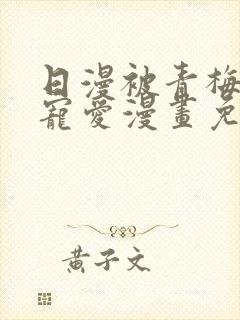 日漫被青梅
寵愛漫畫免
黃子文